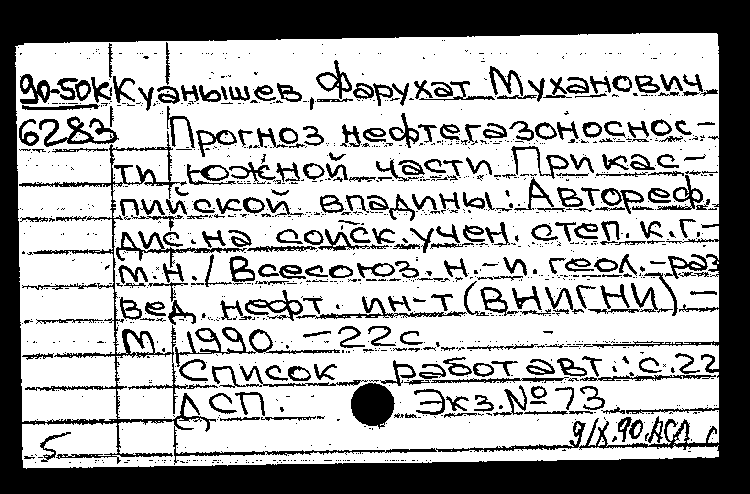 90-50К Куанышев, Фарухат Муханович
6283 Прогноз нефтегазоноснос-
ти южной части Прикас-
пийской впадины: Автореф.
дис. на соиск. учен. степ. к. г.-
м. н. / Всесоюз. н.-и. геол.-раз
вед. нефт. ин-т (ВНИГНИ). -
М., 1990. - 22с.
Список работ авт.: с. 22
ДСП. Экз. № 73
5 9/X.90.